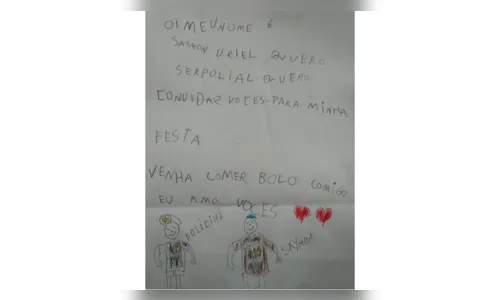 OI MEU NOME É
SAYMON URIEL QUVERO
SER POLIAL QUERO
CONVIDAZ VOCES PARA MINHA
FESTA
VENHA COMER BOLO COMIGO
EU AMO VOCES
POLICIAL
SAYMON